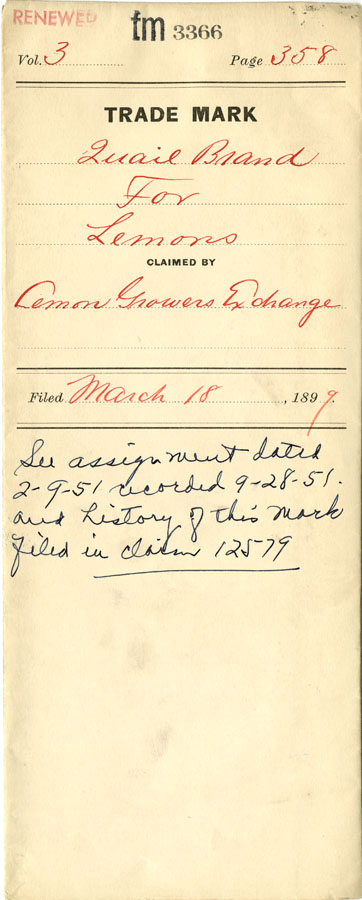 RENEWED
tm 3366
Vol. 3 Page 358
TRADE MARK
Quail Brand
For
Lemons
CLAIMED BY
Lemon Growers Exchange
Filed March 18, 1899.
See assignment dated
2-9-51 recorded 9-28-51.
and history of this mark
filed in claim 12579